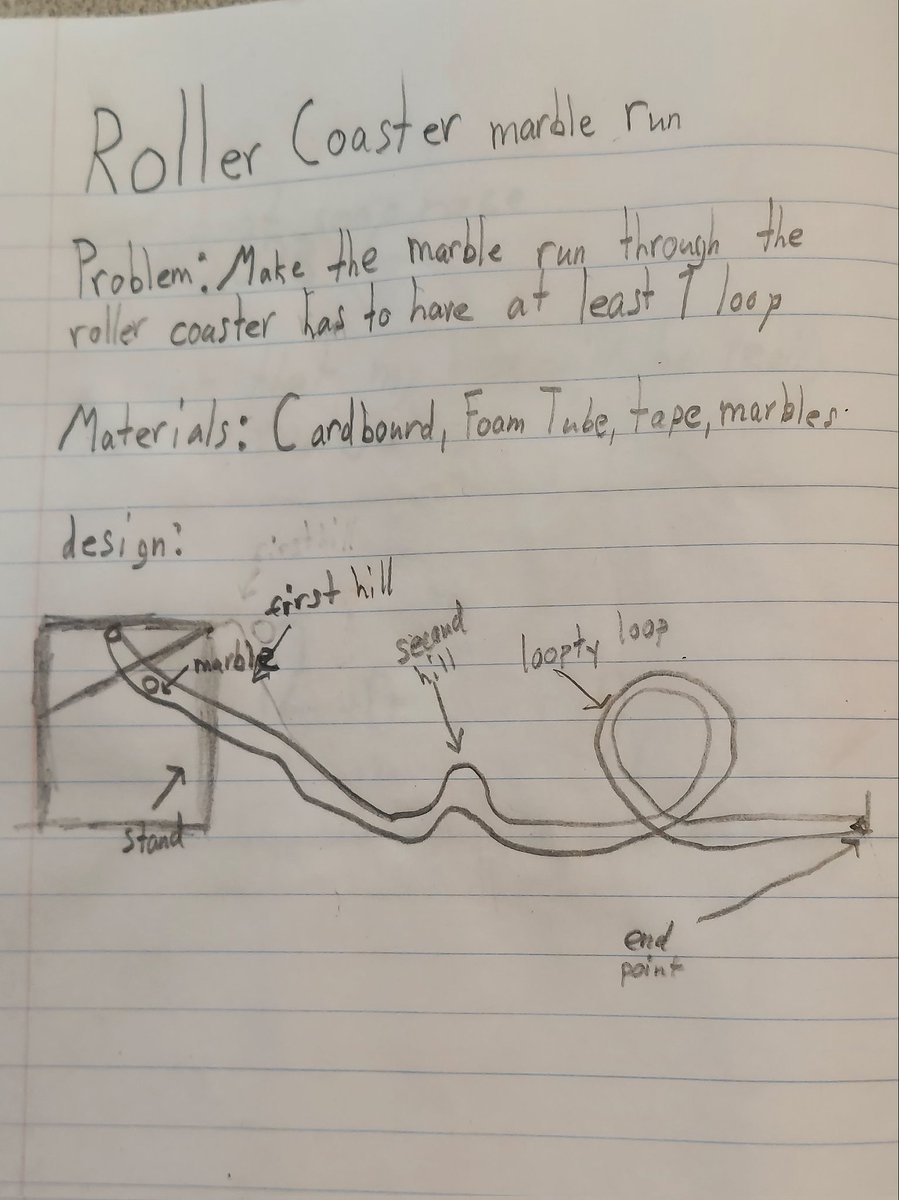 Roller Coaster marble run
Problem: Make the marble run through the
roller coaster has to have at least 1 loop
Materials: Cardbourd, Foam Tube, tape, marbles.
design:
first hill
marble
second
hill
loopty loop
stand
end
point